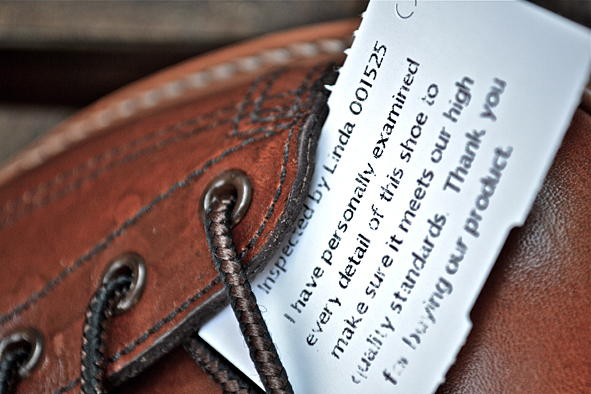 Inspected by Linda 001525
I have personally examined
every detail of this shoe to
make sure it meets our high
quality standards. Thank you
for buying our product.